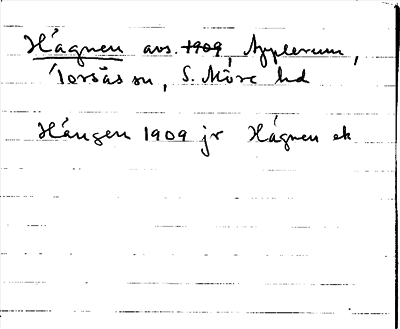 Hágnen avs. 1909, Applerum,
Torsås sn, S. Möre hd
Hángen 1909 jr Hágnen ek